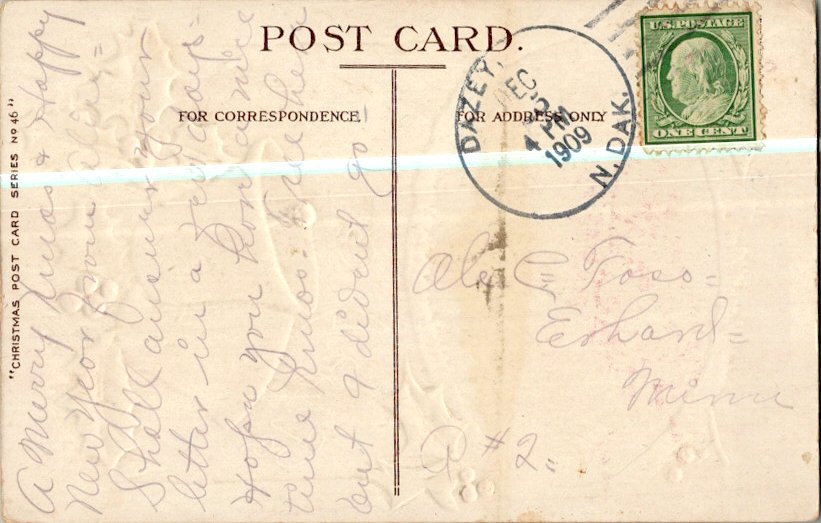 POST CARD.
FOR CORRESPONDENCE
FOR ADDRESS ONLY
"CHRISTMAS POST CARD SERIES No 46"
A Merry Xmas & Happy
New Year from
Shall answer your
letter in a few days-
Hope you have a nice
time Xmas.
but I didn't go-
DAZEY,
N. DAK.
DEC
4 PM
1909
U.S. POSTAGE
ONE CENT
Foss-
Erhard-
Minn
R #2,,